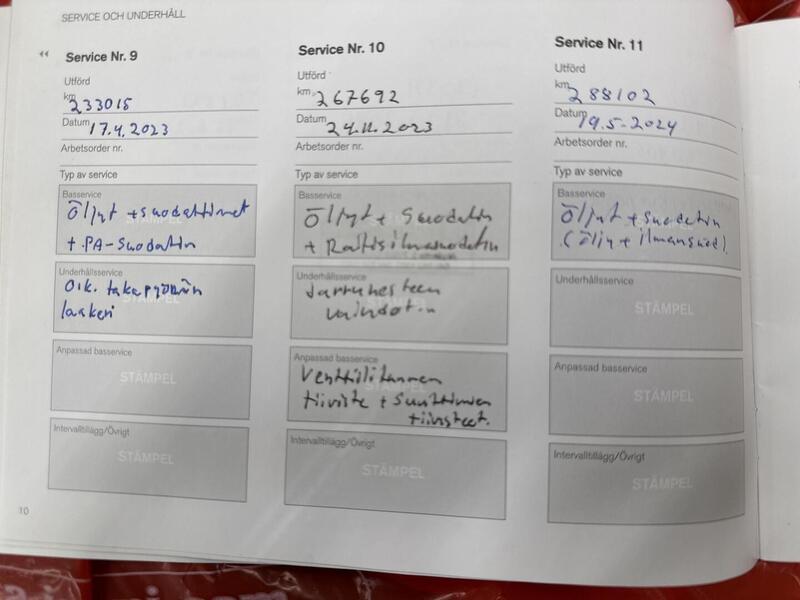 SERVICE OCH UNDERHÅLL
Service Nr. 9
Utförd
km 233015
Datum 17.4.2023
Arbetsorder nr.
Typ av service
Basservice
Öljyt + suodattimet
+ PA-suodatin
Underhållsservice
Oik. takapyörän
laakeri
STÄMPEL
Anpassad basservice
STÄMPEL
Intervalltillägg/Övrigt
STÄMPEL
10
Service Nr. 10
Utförd
km 267692
Datum 24.11.2023
Arbetsorder nr.
Typ av service
Basservice
Öljyt + Suodatin
+ Raitisilmasuodatin
Underhållsservice
Jarrunesteen
Anpassad basservice
Venttiilikannen
tiiviste + Suuttimien
tiivisteet.
Intervalltillägg/Övrigt
STÄMPEL
Service Nr. 11
Utförd
km 288102
Datum 19.5-2024
Arbetsorder nr.
Typ av service
Basservice
Öljyt + suodatin
(Öljy + ilmansuod).
Underhållsservice
STÄMPEL
Anpassad basservice
STÄMPEL
Intervalltillägg/Övrigt
STÄMPEL